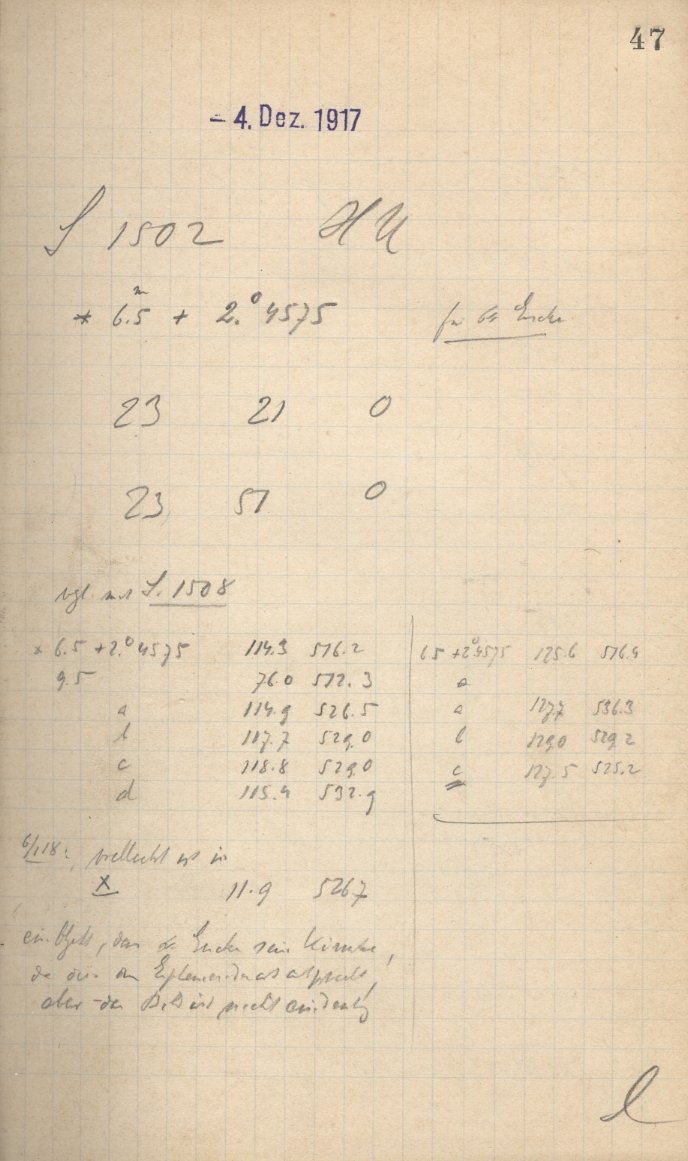 47
- 4. Dez. 1917
S 1502 HU
* 6.5 m + 2.°4575 für Encke
23 21 0
23 51 0
vgl. mit S. 1508
* 6.5 + 2.°4575 114.3 516.2
9.5 76.0 512.3
a 114.9 526.5
b 117.7 529.0
c 118.8 529.0
d 115.4 532.9
6.5 + 2.°4575 125.6 516.4
a
a 127.7 536.3
b 129.0 529.2
c 127.5 525.2
6/I 18: vielleicht ist in
X 11.9 526.7
ein Objekt, das Encke sein könnte,
da die
aber das Bild ist nicht eindeutig